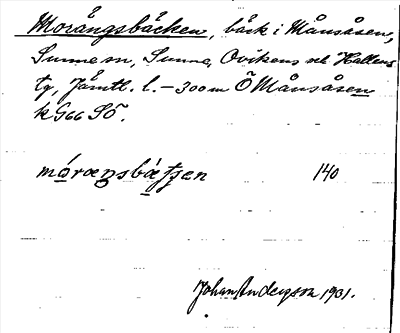 Morångsbäcken, bäck i Månsåsen,
Sunne sn, Sunne, Ovikens och Hallens
tg, Jämtl. l. – 300 m Ö Månsåsen
k G66 SÖ.
mórɑŋsbæ̀tʃen 140
Johan Anderson 1931.